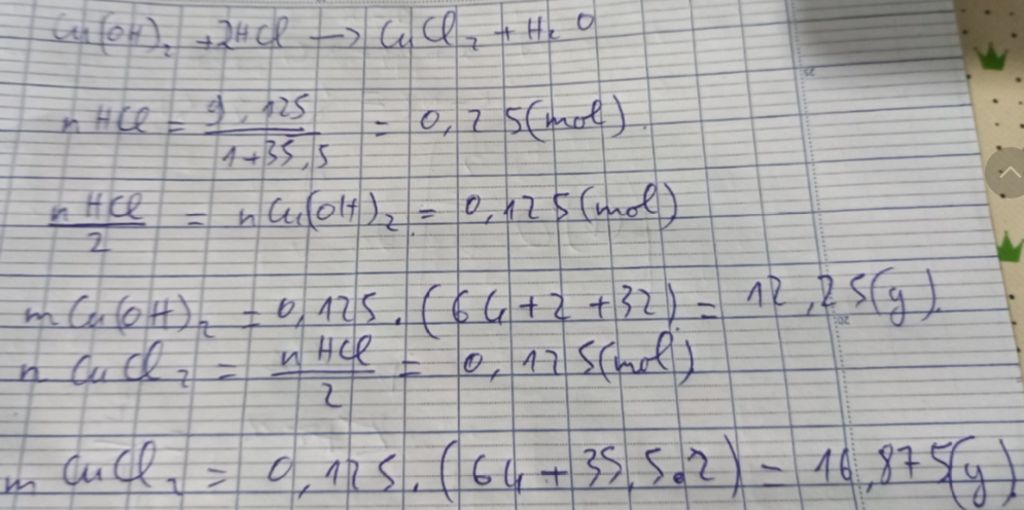 Cu(OH)₂ + 2HCl → CuCl₂ + H₂O
nHCl = 9,125 / 1+35,5 = 0,25(mol).
nHCl / 2 = nCu(OH)₂ = 0,125(mol)
mCu(OH)₂ = 0,125.(64+2+32) = 12,25(g).
nCuCl₂ = nHCl / 2 = 0,125(mol)
mCuCl₂ = 0,125.(64+35,5.2) = 16,875(g)